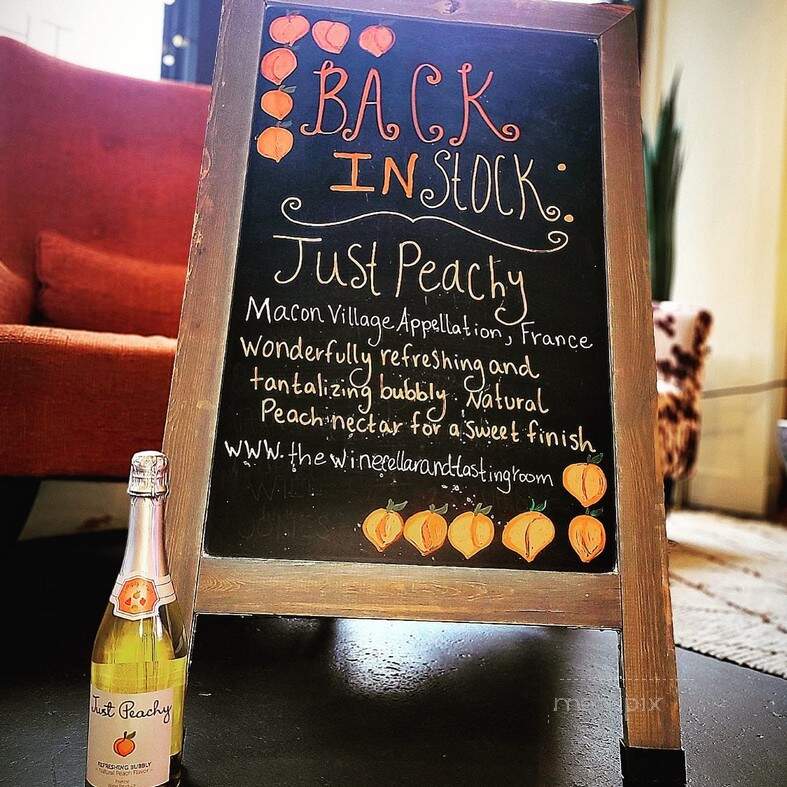 BACK
IN STOCK
Just Peachy
Macon Village Appellation, France
Wonderfully refreshing and
tantalizing bubbly. Natural
Peach nectar for a sweet finish
www.thewinecellarandtastingroom
Just Peachy
REFRESHING BUBBLY
Natural Peach Flavor